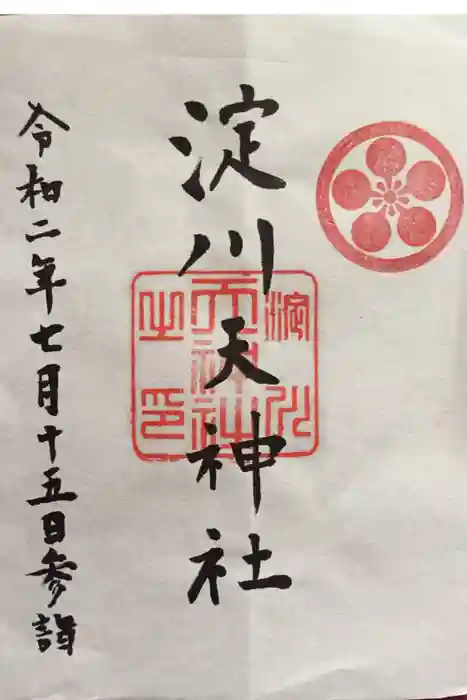 淀川天神社
淀川
天神社
之印
令和二年七月十五日参詣